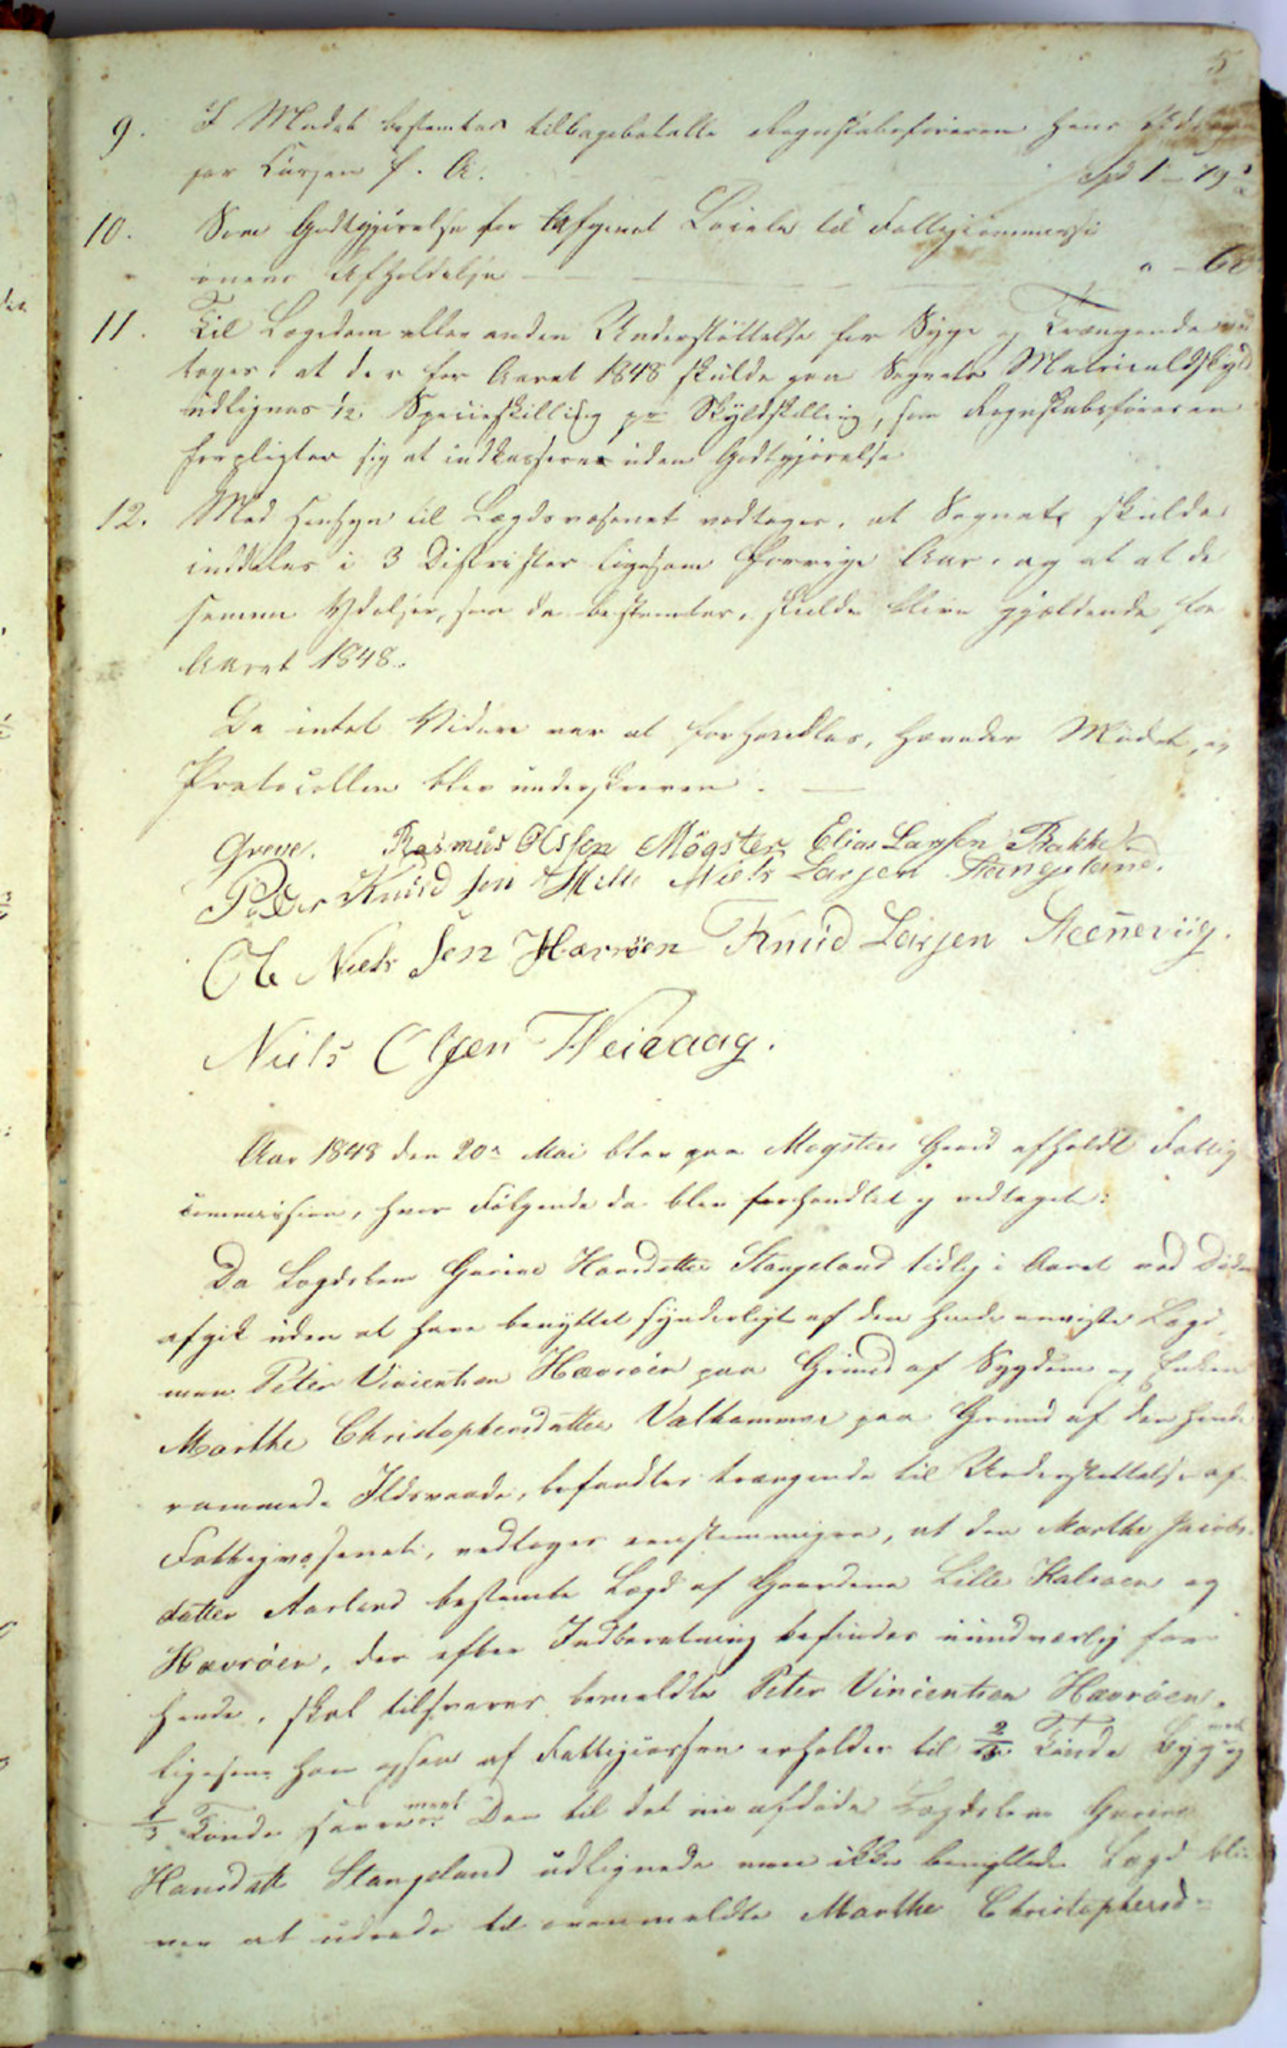 5
9. I Mødet bestemtes tilbagebetalte Regnskabsføreren hans
for Cassen f. A. Spd 1 - 79
10. Som Godtgjørelse for Locale til Fattigcommissi
onens Afholdelse " - 60
11. Til Lægedom eller anden Understøttelse for Syge og Trængende ved
toges, at der for Aaret 1848 skulde paa Sognets Matriculdskyld
udlignes 1/2 Specieskilling pr Skyldskilling, som Regnskabsføreren
forpligter sig at indkassere uden Godtgjørelse
12. Med Hensyn til Lægdsvæsenet vedtoges, at Sognet skulde
inddeles i 3 Districter ligesom forrige Aar, og at at de
samme Ydelser, som da bestemtes, skulde blive gjældende for
Aaret 1848.
Da intet Videre var at forhandles, hævedes Mødet, og
Protocollen blev underskreven.
Greve. Rasmus Olssen Møgster Elias Larsen Bakke
Peder Knud sen Niels Larsen Stangeland.
Ole Niels Sen Havrøen Knud Larsen Steenevig.
Niels Olsen Weivaag.
Aar 1848 den 20 Mai blev paa Møgster Gaard afholdt Fattig
commission, hvor Følgende da blev forhandlet og vedtaget:
Da Lægdslem Gurine Hansdatter Stangeland tidlig i Aaret ved Døden
afgik uden at have benyttet synderligt af den hende anviste Lægd,
men Peter Vincentsen Hævrøen paa Grund af Sygdom og Enken
Marthe Christophersdatter Valhammer paa Grund af den hende
rammede Ildsvaade, befandtes trængende til Understøttelse af
Fattigvæsenet, vedtoges eenstemmigen, at den Marthe Jacobs
datter Aarland bestemte Lægd af Gaardene Lille Kalsøen og
Hævrøen, der efter Indberetning befindes uundværlig for
hende, skal tilsvares bemeldte Peter Vincentsen Hævrøen,
ligesom han ogsaa af Fattigcassen erholder til 2/3 Tønde Byg og
1/3 Tønde Havre. Den til det nu afdøde Lægdslem Gurine
Hansdatt Stangeland udlignede men ikke benyttede Lægd bli
ver at udrede til ovenmeldte Marthe Christophersd=